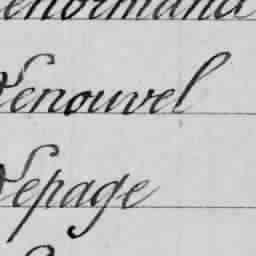 Lenormand
Lenouvel
Lepage